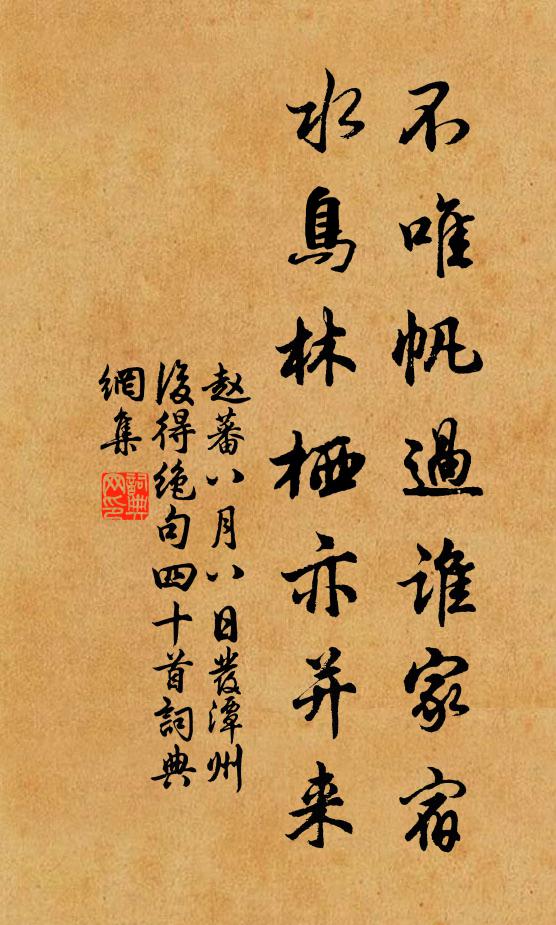 不唯帆過誰家宿
水鳥林栖亦并来
赵蕃八月八日發潭州
後得绝句四十首詞典
網集
詞典網印